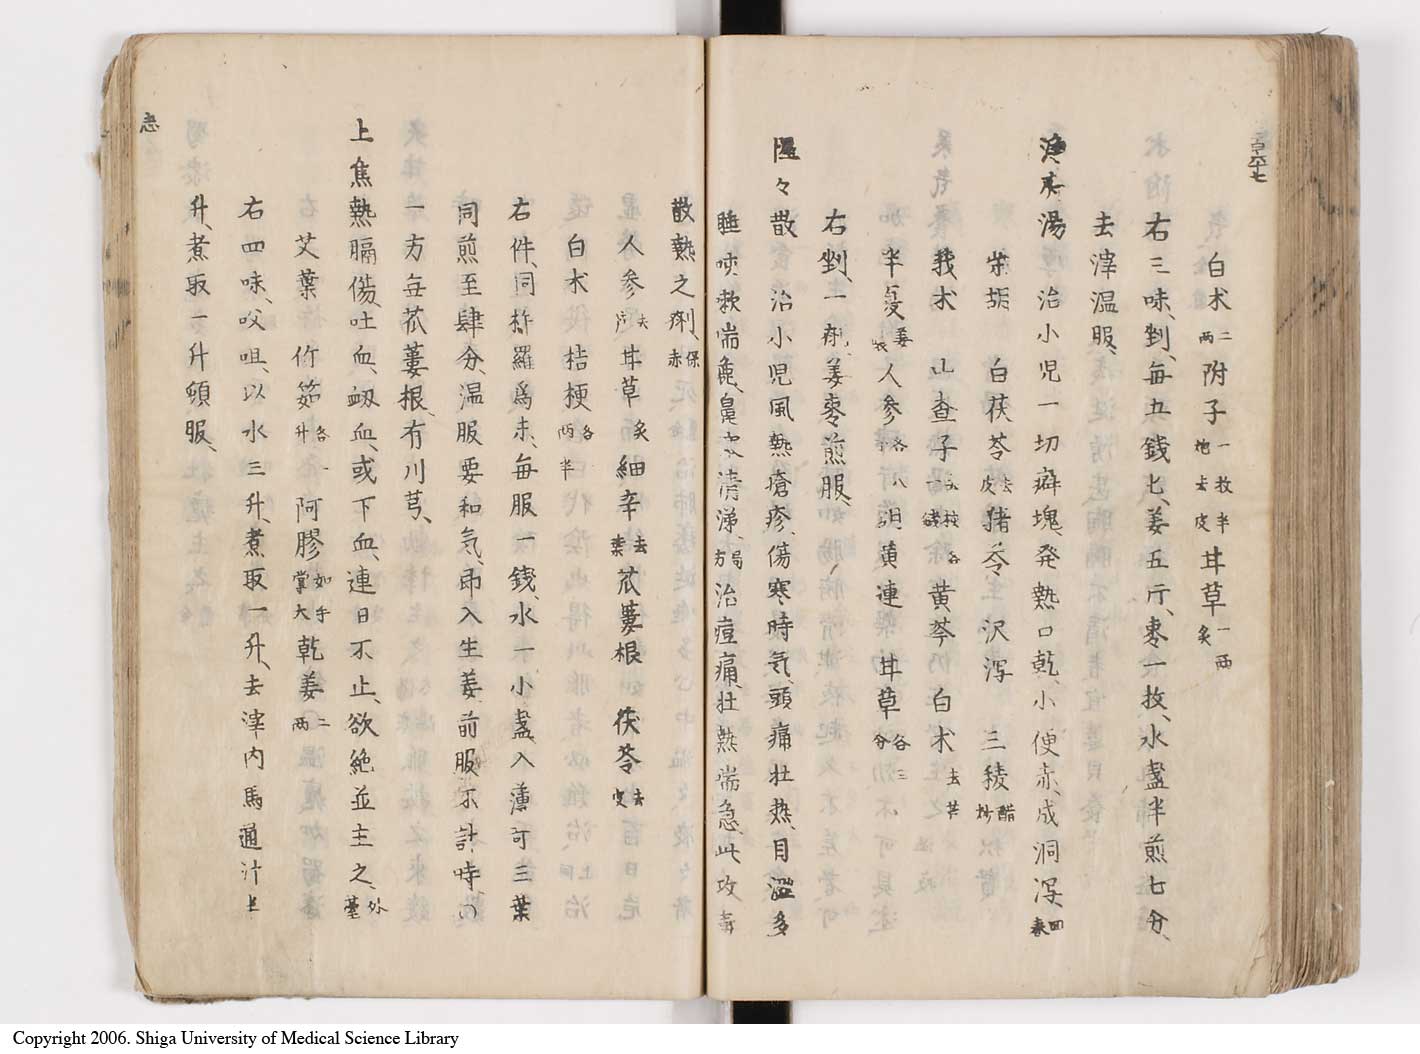 白术二両附子一枚半炮去皮甘草一両炙
右三味、剉、毎五銭匕、姜五斤、棗一枚、水盞半煎七分、
去滓温服、
湯治小児一切癖塊発熱口乾、小便赤、或洞泻
柴胡 白茯苓去皮猪苓沢泻 三稜醋炒
莪术 山査子黄芩白术去芦
半夏姜人参黄連 甘草各三分
右剉、一剤、姜棗煎服、
々散治小児風熱瘡疹、傷寒時気、頭痛壮熱、目澀多
睡咳嗽喘麁鼻清涕、局方治痘痛、壮熱喘急、此攻毒
散熱之剤、保赤
人参去甘草炙細辛去葉苽蔞根茯苓去皮
白朮桔梗各両半
右件、同杵羅為末、毎服一銭、水一小盞、入薄可三葉
同煎至肆分、温服要和気、即入生姜前服不計時
一方毎苽蔞根、有川芎、
上焦熱膈傷、吐血、衂血、或下血、連日不止、欲絶並主之、外䑓
艾葉 竹筎各一升 阿膠如手掌大乾姜二両
右四味、㕮咀、以水三升、煮取一升、去滓内馬通汁上
升、煮取一升頓服、
Copyright 2006. Shiga University of Medical Science Library